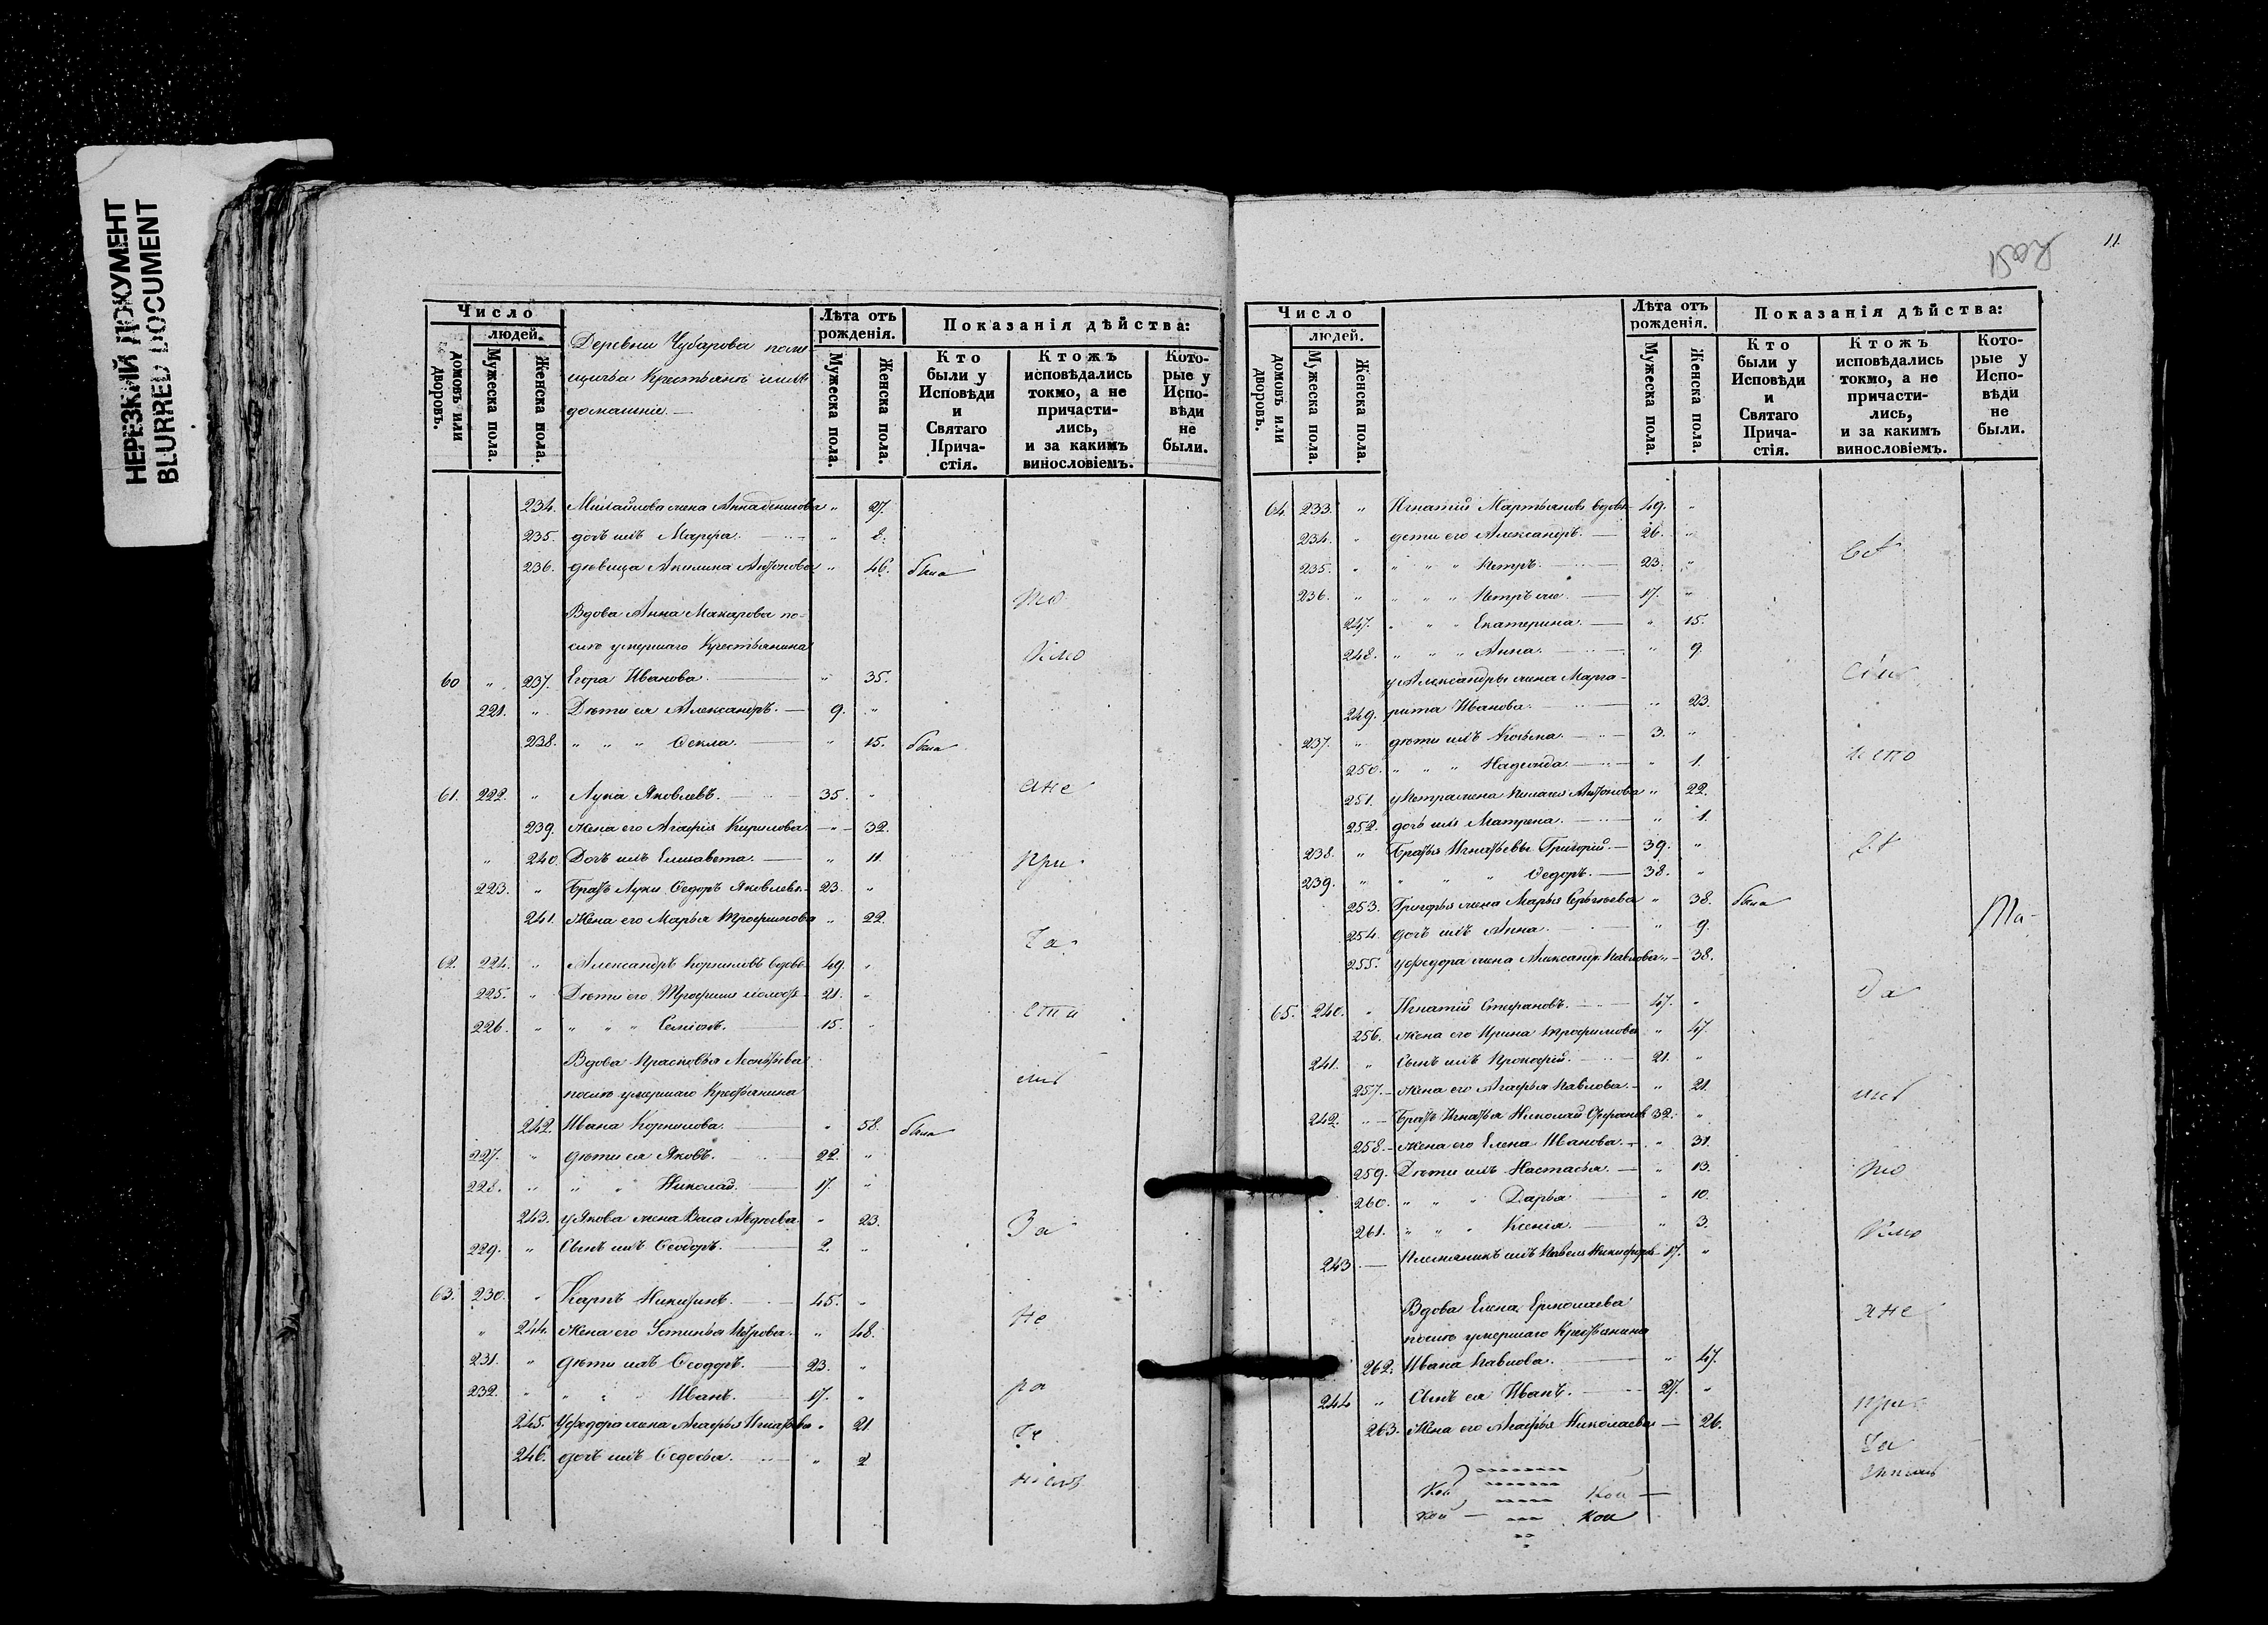 НЕРЕЗКИЙ ДОКУМЕНТ
BLURRED DOCUMENT
Число
домовъ или дворовъ.
людей.
Мужеска пола.
Женска пола.
Деревни Чубарова поме
щичьи Крестьяне и ихъ
домашніе.—
Лѣта отъ рожденія.
Мужеска пола.
Женска пола.
Показанія дѣйства:
Кто были у Исповѣди и Святаго Прича-стія.
Ктожъ исповѣдались токмо, а не причасти-лись, и за какимъ винословіемъ.
Кото-рые у Испо-вѣди не были.
234. Михайлова жена Анна Денисова " 27.
235. дочь ихъ Марѳа. " 8.
236. дѣвица Акилина Антонова " 46. была
то
Вдова Анна Макарова по-
слѣ умершаго Крестьянина
кмо
60 " 237. Егора Иванова. " 35.
221. " Дѣти ея Александръ. 9. "
238. " " " Ѳекла. " 15. была
61. 222. " Лука Яковлевъ. 35. "
ане
239. Жена его Агафія Кирилова. " 32.
" 240. Дочь ихъ Елисавета. " 11.
при
223. " Братъ Луки Ѳедоръ Яковлевъ. 23. "
241. Жена его Марья Трофимова " 22.
ча
62. 224. " Александръ Корниловъ вдовъ. 49. "
225. " Дѣти его Трофимъ холостъ 21. "
сти
226. " " " " Семіонъ. 15. "
Вдова Прасковья Леонтьева
лись
послѣ умершаго Крестьянина
242. Ивана Корнилова. " 58. была
227. " дѣти ея Яковъ. 22. "
228. " " " Николай. 17. "
243. у Якова жена Васа Авдѣева. " 23.
За
229. " Сынъ ихъ Ѳеодоръ. 2. "
63. 230. " Карпъ Никитинъ. 45. "
" 244. Жена его Устинья Петрова. " 48.
не
231. " дѣти ихъ Ѳеодоръ. 23. "
232. " " " Иванъ. 17. "
ра
245. У Ѳедора жена Агафья Игнатьева " 21.
де
246. дочь ихъ Ѳедосья. " 2
ніемъ
11.
Число
домовъ или дворовъ.
людей.
Мужеска пола.
Женска пола.
Лѣта отъ рожденія.
Мужеска пола.
Женска пола.
Показанія дѣйства:
Кто были у Исповѣди и Святаго Прича-стія.
Ктожъ исповѣдались токмо, а не причасти-лись, и за какимъ винословіемъ.
Кото-рые у Испо-вѣди не были.
64. 233. " Игнатій Мартьяновъ вдовъ 49. "
234. " дѣти его Александръ. 26. "
всѣ
235. " " " " Петръ. 23. "
236. " " " " Петръ же. 17. "
247. " " " Екатерина. " 15.
248. " " " Анна. " 9.
у Александры жена Марга-
сіи
249. рита Иванова. " 23.
237. " дѣти ихъ Козьма. 3. "
250. " " " Надежда. " 1.
испо
251. у Петра жена Пелагея Антонова " 22.
252. дочь ихъ Матрена. " 1.
238. " Братья Игнатьевы Григорій. 39. "
вѣ
239. " " " " Ѳедоръ. 38. "
253. Григорья жена Марья Сергѣева " 38. была
254. дочь ихъ Анна. " 9.
255. у Ѳедора жена Александр. Павлова " 38.
да
65. 240. " Игнатій Стефановъ. 47. "
256. Жена его Ирина Трофимова " 47.
241. " Сынъ ихъ Прокофій. 21. "
257. Жена его Агафья Павлова. " 21.
лись
242. " Братъ Игнатья Николай Стефановъ 32. "
258. Жена его Елена Иванова. " 31.
259. Дѣти ихъ Настасья. " 13.
то
260. " " " Дарья " 10.
261. " " " Ксенія. " 3.
кмо
243. Племянникъ ихъ Павелъ Никифоровъ 17. "
Вдова Елена Ермолаева
ане
послѣ умершаго Крестьянина
262. Ивана Павлова. " 47.
244 " Сынъ ея Иванъ. 27. "
при
263. Жена его Агафья Николаева 26.
ча